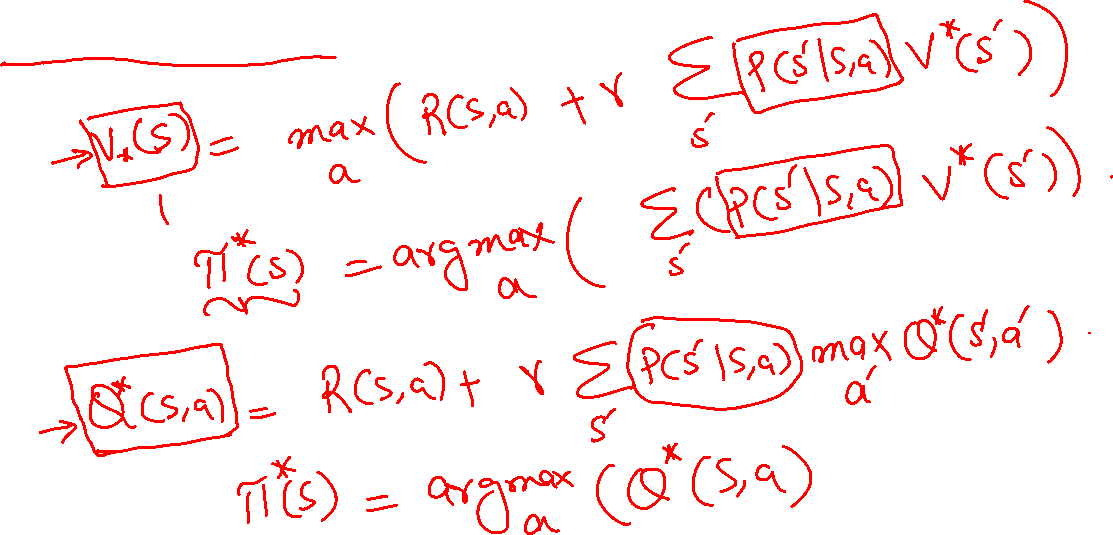 → V*(s) = max_a ( R(s,a) + γ Σ_s' P(s'|s,a) V*(s') )
π*(s) = argmax_a ( Σ_s' ( P(s'|s,a) V*(s') ) .
→ Q*(s,a) = R(s,a) + γ Σ_s' P(s'|s,a) max_a' Q*(s',a') .
π*(s) = argmax_a ( Q*(s,a)